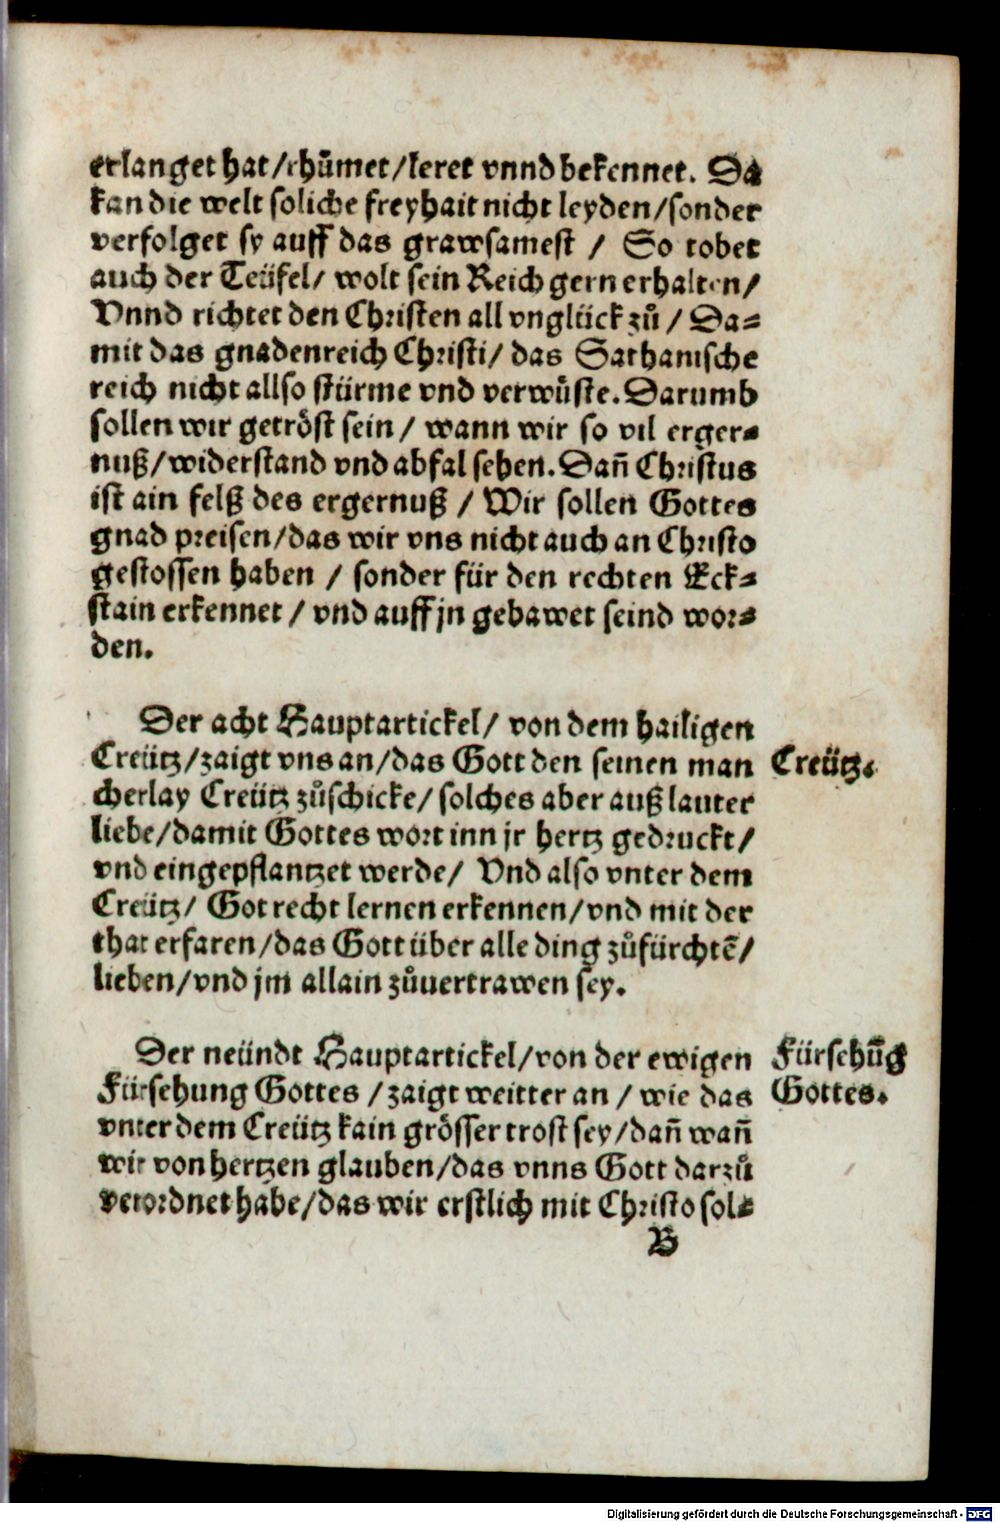 erlanget hat/rhůmet/leret vnnd bekennet. Da
kan die welt soliche freyhait nicht leyden/sonder
verfolget sy auff das grawsamest / So tobet
auch der Teüfel/ wolt sein Reich gern erhalten/
Vnnd richtet den Christen all vnglück zů / Da-
mit das gnadenreich Christi/ das Sathanische
reich nicht allso stürme vnd verwůste. Darumb
sollen wir getröst sein/ wann wir so vil erger-
nuß/widerstand vnd abfal sehen. Dañ Christus
ist ain felß des ergernuß / Wir sollen Gottes
gnad preisen/das wir vns nicht auch an Christo
gestossen haben / sonder für den rechten Eck-
stain erkennet / vnd auff jn gebawet seind wor-
den.
Der acht Hauptartickel/ von dem hailigen
Creütz/zaigt vns an/das Gott den seinen man
cherlay Creütz zůschicke/ solches aber auß lauter
liebe/damit Gottes wort inn jr hertz gedruckt/
vnd eingepflantzet werde/ Vnd also vnter dem
Creütz/ Got recht lernen erkennen/vnd mit der
that erfaren/das Gott über alle ding zůfürchtē/
lieben/vnd jm allain zůuertrawen sey.
Creütz.
Der neündt Hauptartickel/von der ewigen
Fürsehung Gottes /zaigt weitter an / wie das
vnter dem Creütz kain grösser trost sey/dañ wañ
wir von hertzen glauben/das vnns Gott darzů
verordnet habe/das wir erstlich mit Christo sol-
Fürsehūg
Gottes.
B
Digitalisierung gefördert durch die Deutsche Forschungsgemeinschaft - DFG